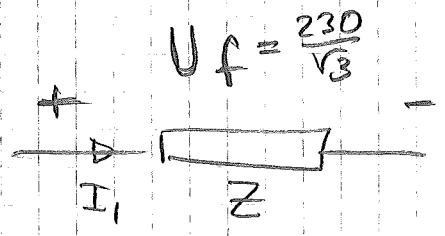 U f = 230/√3
+ -
I₁ Z